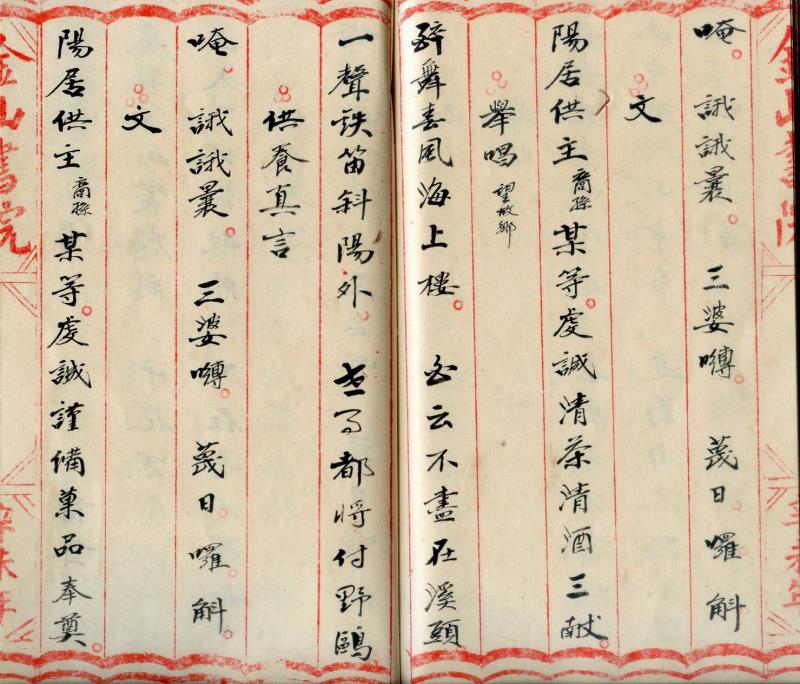 唵 誐誐曩 三婆嚩 韈日囉斛
文
陽居供主裔孫某等虔誠清茶清酒三献
舉唱 望故鄉
醉舞春風海上樓 白云不盡在溪頭
一聲鉄笛斜陽外 世事都將付野鷗
供養真言
唵 誐誐曩 三婆嚩 韈日囉斛
文
陽居供主裔孫某等虔誠謹備菓品奉奠
金山書院
辛未年